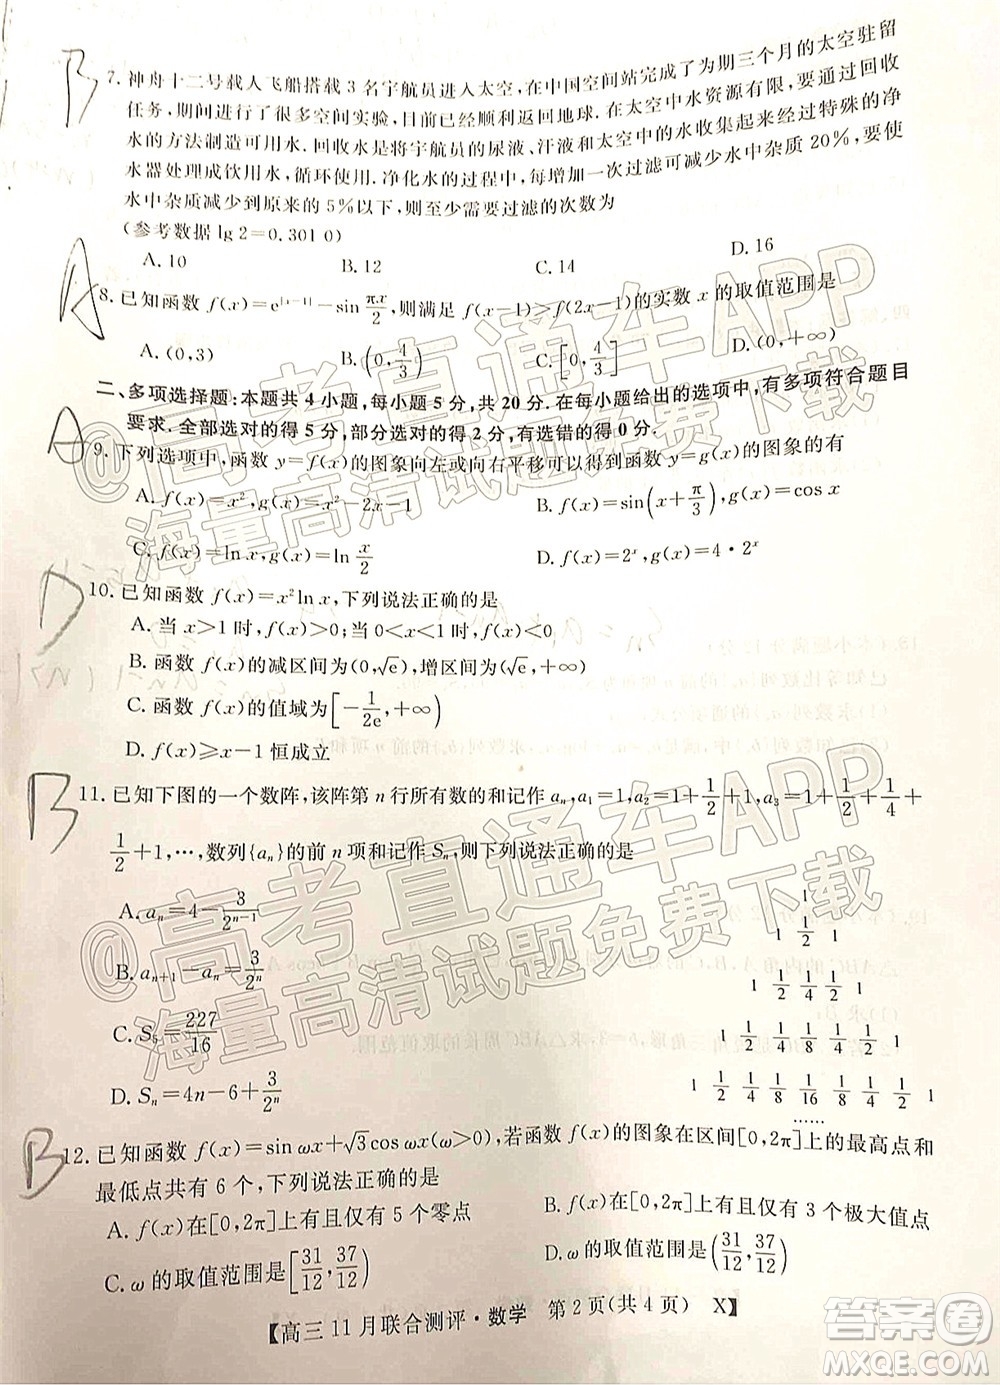 B
7. 神舟十二号载人飞船搭载 3 名宇航员进入太空,在中国空间站完成了为期三个月的太空驻留
任务,期间进行了很多空间实验,目前已经顺利返回地球.在太空中水资源有限,要通过回收
水的方法制造可用水.回收水是将宇航员的尿液、汗液和太空中的水收集起来经过特殊的净
水器处理成饮用水,循环使用.净化水的过程中,每增加一次过滤可减少水中杂质 20%,要使
水中杂质减少到原来的 5%以下,则至少需要过滤的次数为
(参考数据 lg 2=0.301 0)
A. 10 B. 12 C. 14 D. 16
A
8. 已知函数 f(x)=e^{|x-1|}-sin πx/2,则满足 f(x-1)>f(2x-1)的实数 x 的取值范围是
A. (0,3) B. (0,4/3) C. [0,4/3] D. (0,+∞)
二、多项选择题:本题共 4 小题,每小题 5 分,共 20 分.在每小题给出的选项中,有多项符合题目
要求.全部选对的得 5 分,部分选对的得 2 分,有选错的得 0 分.
A
9. 下列选项中,函数 y=f(x)的图象向左或向右平移可以得到函数 y=g(x)的图象的有
A. f(x)=x²,g(x)=x²-2x-1 B. f(x)=sin(x+π/3),g(x)=cos x
C. f(x)=ln x,g(x)=ln x/2 D. f(x)=2^x,g(x)=4·2^x
D
10. 已知函数 f(x)=x²ln x,下列说法正确的是
A. 当 x>1 时,f(x)>0;当 0<x<1 时,f(x)<0
B. 函数 f(x)的减区间为(0,√e),增区间为(√e,+∞)
C. 函数 f(x)的值域为[-1/2e,+∞)
D. f(x)⩾x-1 恒成立
B
11. 已知下图的一个数阵,该阵第 n 行所有数的和记作 a_n,a_1=1,a_2=1+1/2+1,a_3=1+1/2+1/4+
1/2+1,…,数列{a_n}的前 n 项和记作 S_n,则下列说法正确的是
A. a_n=4-3/2^{n-1}
B. a_{n+1}-a_n=3/2^n
C. S_5=227/16
D. S_n=4n-6+3/2^n
1
1 1/2 1
1 1/2 1/4 1/2 1
1 1/2 1/4 1/8 1/4 1/2 1
1 1/2 1/4 1/8 1/16 1/8 1/4 1/2 1
……
B
12. 已知函数 f(x)=sin ωx+√3cos ωx(ω>0),若函数 f(x)的图象在区间[0,2π]上的最高点和
最低点共有 6 个,下列说法正确的是
A. f(x)在[0,2π]上有且仅有 5 个零点 B. f(x)在[0,2π]上有且仅有 3 个极大值点
C. ω 的取值范围是[31/12,37/12) D. ω 的取值范围是(31/12,37/12)
【高三 11 月联合测评·数学 第 2 页(共 4 页) X】
@高考直通车APP
海量高清试题免费下载
@高考直通车APP
海量高清试题免费下载
答案圈
MXQE.COM